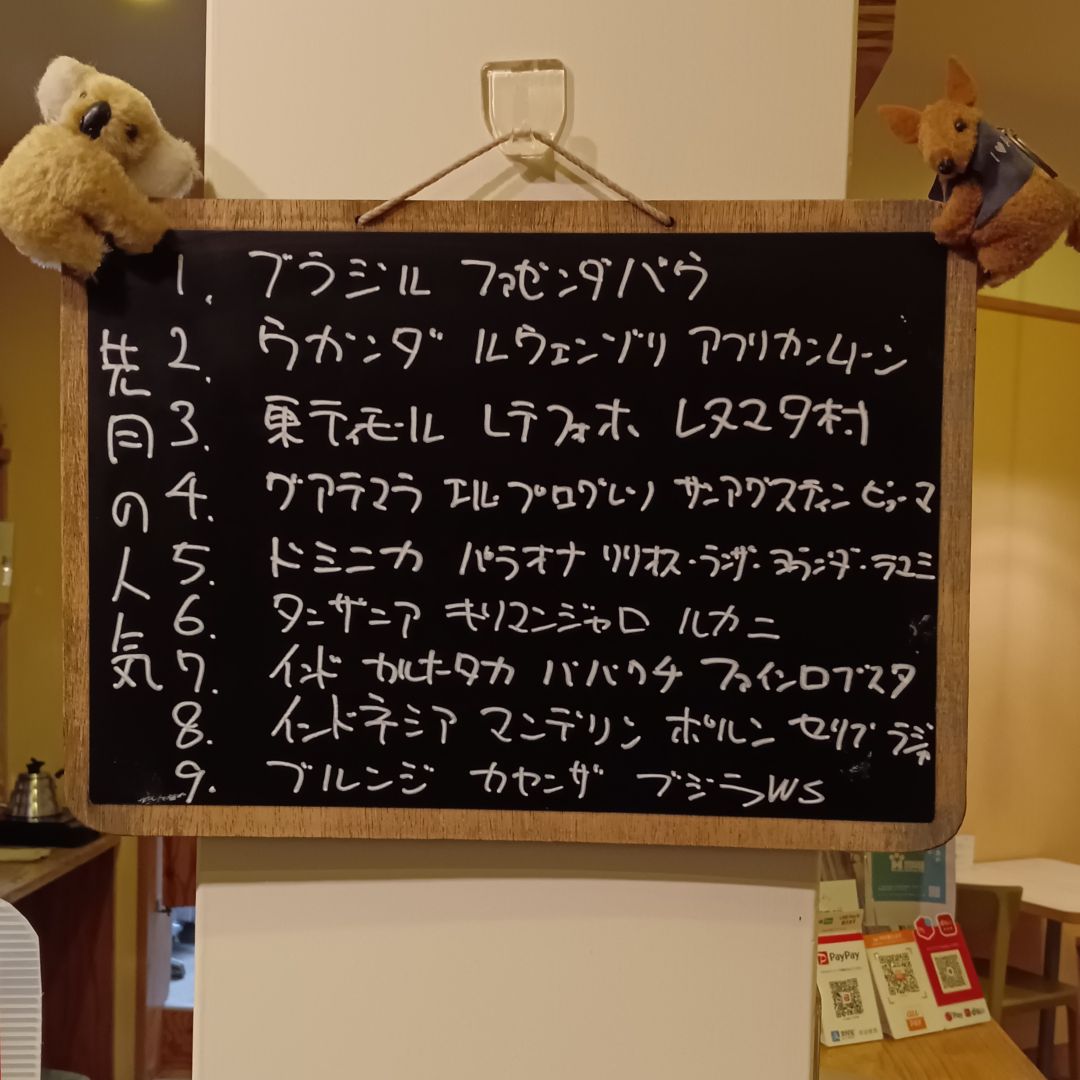 先月の人気
1. ブラジル ファゼンダバウ
2. ウガンダ ルウェンゾリ アフリカンムーン
3. 東ティモール レテフォホ レヌマタ村
4. グアテマラ エル・プログレソ サンアグスティン ピューマ
5. ドミニカ バラオナ リリオス・ランザ・ヨランダ・ラユミ
6. タンザニア キリマンジャロ ルカニ
7. インド カルナータカ ババウチ ファインロブスタ
8. インドネシア マンデリン ポルン セリブ ラジャ
9. ブルンジ カヤンザ ブジラWS
PayPay
au PAY
Pay
d払い